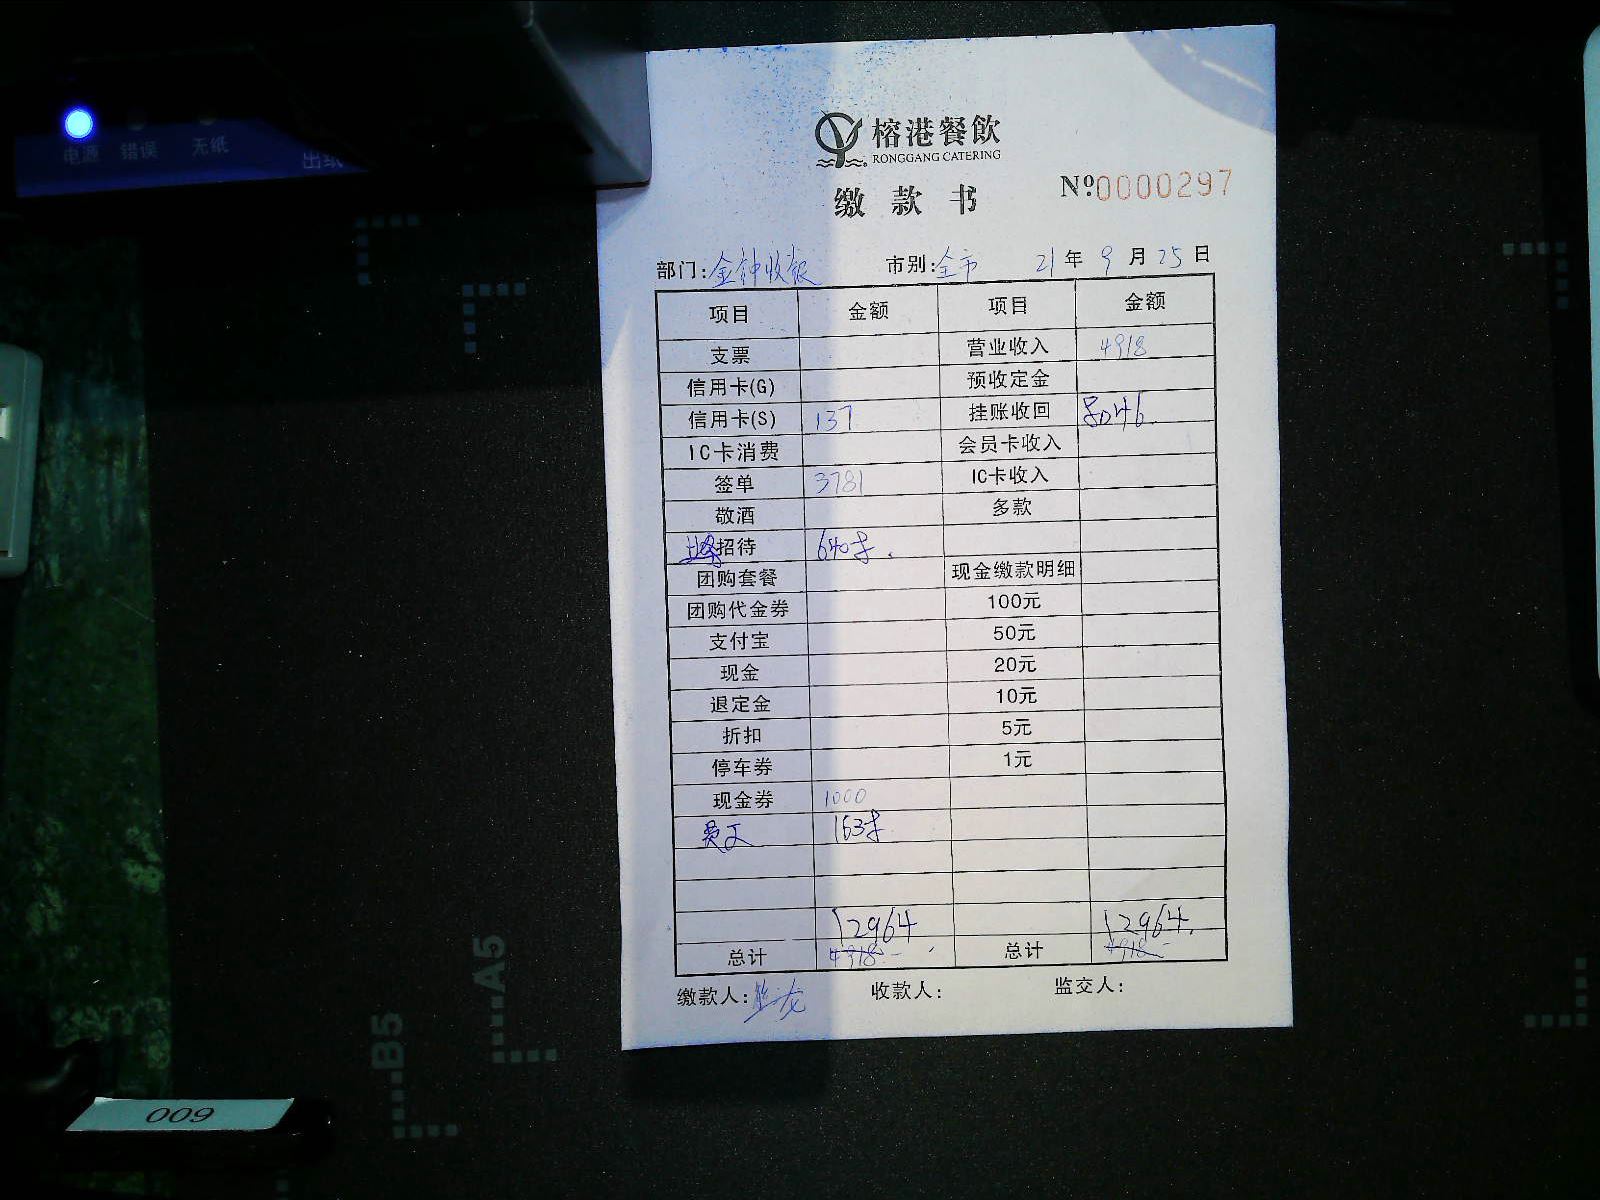 电源 错误 无纸 出纸
榕港餐飲
RONGGANG CATERING
缴款书 Nº0000297
部门:金钟收银 市别:全市 21年9月25日
项目 金额 项目 金额
支票 营业收入 4918
信用卡(G) 预收定金
信用卡(S) 137 挂账收回 8046.
IC卡消费 会员卡收入
签单 3781 IC卡收入
敬酒 多款
招待
团购套餐 现金缴款明细
团购代金券 100元
支付宝 50元
现金 20元
退定金 10元
折扣 5元
停车券 1元
现金券 1000
12964 12964.
总计 4918.- 总计 4918.-
缴款人: 收款人: 监交人:
A5
B5
009